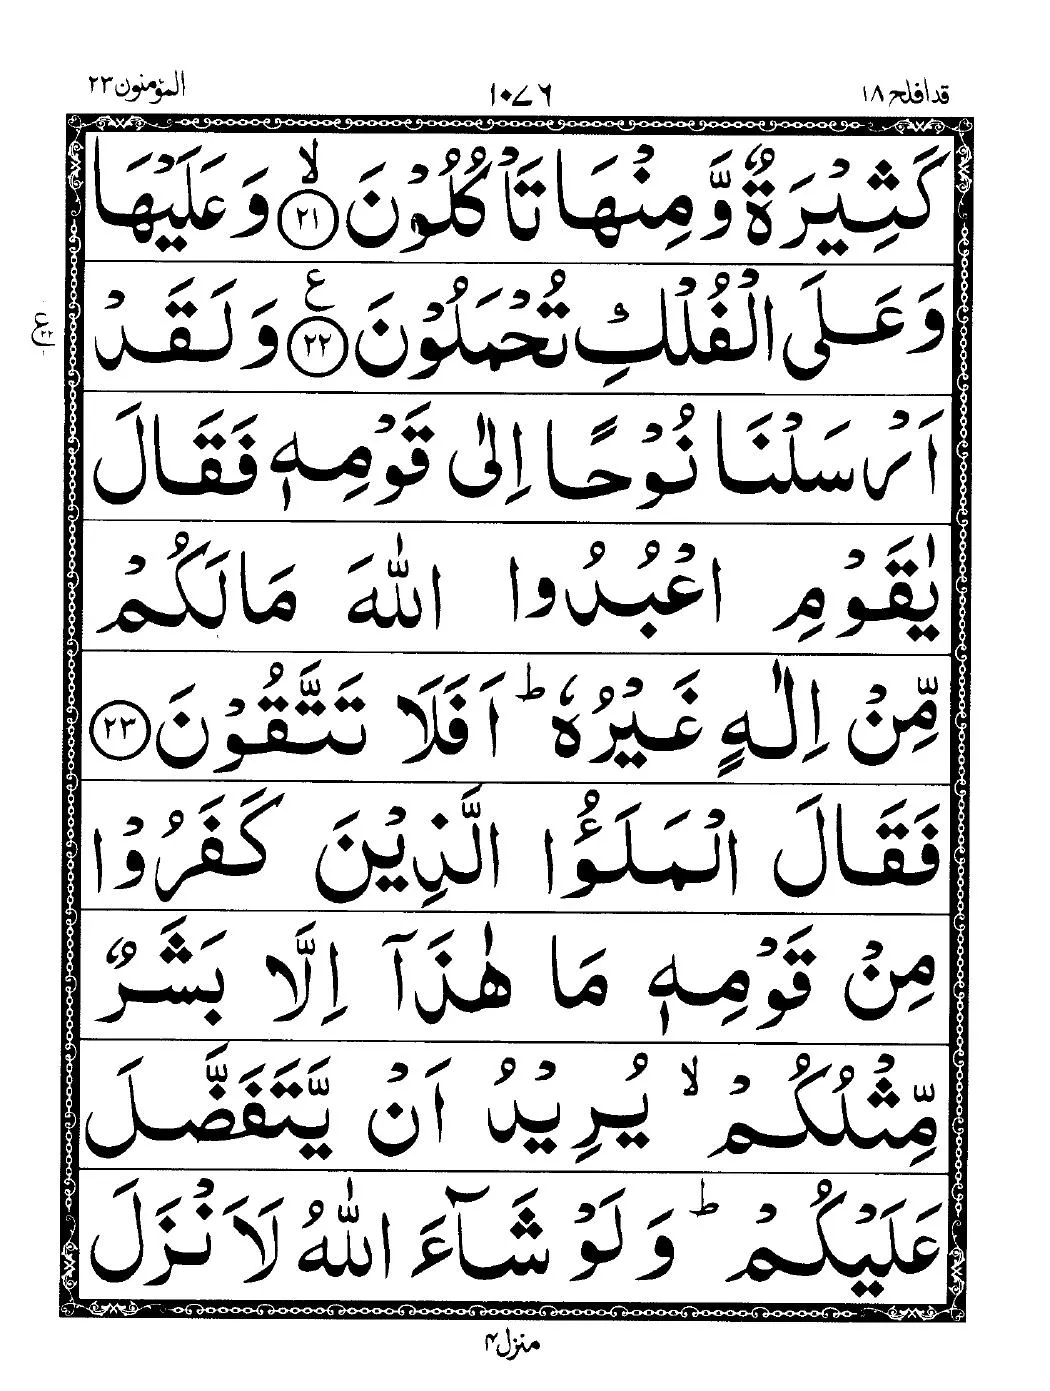 قدافلح ١٨ ١٠٧٦ المؤمنون ٢٣
كَثِيْرَةٌ وَّمِنْهَا تَاْكُلُوْنَ ۙ﴿٢١﴾ وَعَلَيْهَا
وَعَلَى الْفُلْكِ تُحْمَلُوْنَ ﴿٢٢﴾ ع وَلَقَدْ
اَرْسَلْنَا نُوْحًا اِلٰى قَوْمِهٖ فَقَالَ
يٰقَوْمِ اعْبُدُوا اللّٰهَ مَالَكُمْ
مِّنْ اِلٰهٍ غَيْرُهٗ ؕ اَفَلَا تَتَّقُوْنَ ﴿٢٣﴾
فَقَالَ الْمَلَؤُا الَّذِيْنَ كَفَرُوْا
مِنْ قَوْمِهٖ مَا هٰذَآ اِلَّا بَشَرٌ
مِّثْلُكُمْ ۙ يُرِيْدُ اَنْ يَّتَفَضَّلَ
عَلَيْكُمْ ؕ وَلَوْ شَآءَ اللّٰهُ لَاَنْزَلَ
منزل ٤